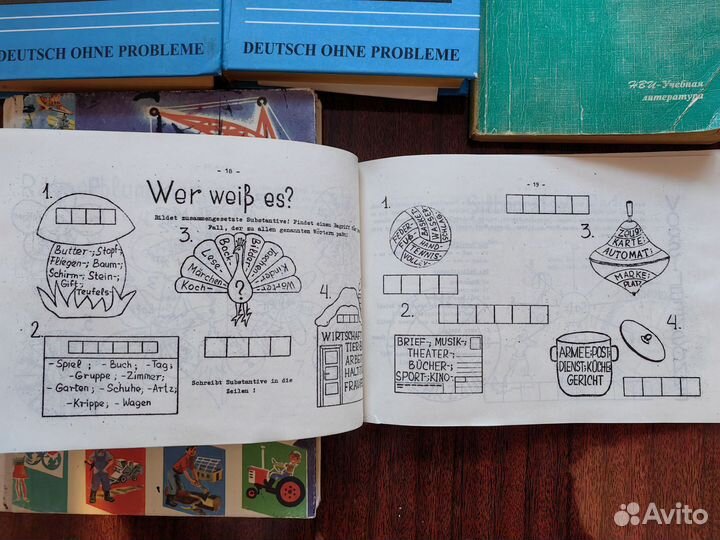 DEUTSCH OHNE PROBLEME
DEUTSCH OHNE PROBLEME
НВИ-Учебная
литература
- 18 -
Wer weiß es?
Bildet zusammengesetzte Substantive! Findet einen
Fall, der zu allen genannten Wörtern
1.
Butter-; Stopf-;
Fliegen-; Baum-;
Schirm-; Stein-;
Gift-;
Teufels-
3.
Koch-
Märchen-
Lese-
Back-
Bilder-
Taschen-
Kinder-
Wörter-
?
2.
-Spiel ; -Buch ; -Tag;
-Gruppe ; -Zimmer;
-Garten ; -Schuhe, -Artz;
-Krippe ; -Wagen
Schreibt Substantive in die
Zeilen !
4.
WIRTSCHAFT
TIER
HALT
FRAUEN
- 19 -
1.
FEDER-
FUß-
BASKET-
WASSER-
SCHLAG-
HAND-
TENNIS-
VOLLEY-
3.
ZOUG
KARTE;
AUTOMAT;
MARKE;
PLATZ
2.
BRIEF-; MUSIK-;
THEATER-;
BÜCHER-;
SPORT-; KINO-
4.
ARMEE; POST
DIENST; KÜCHE
GERICHT
Avito